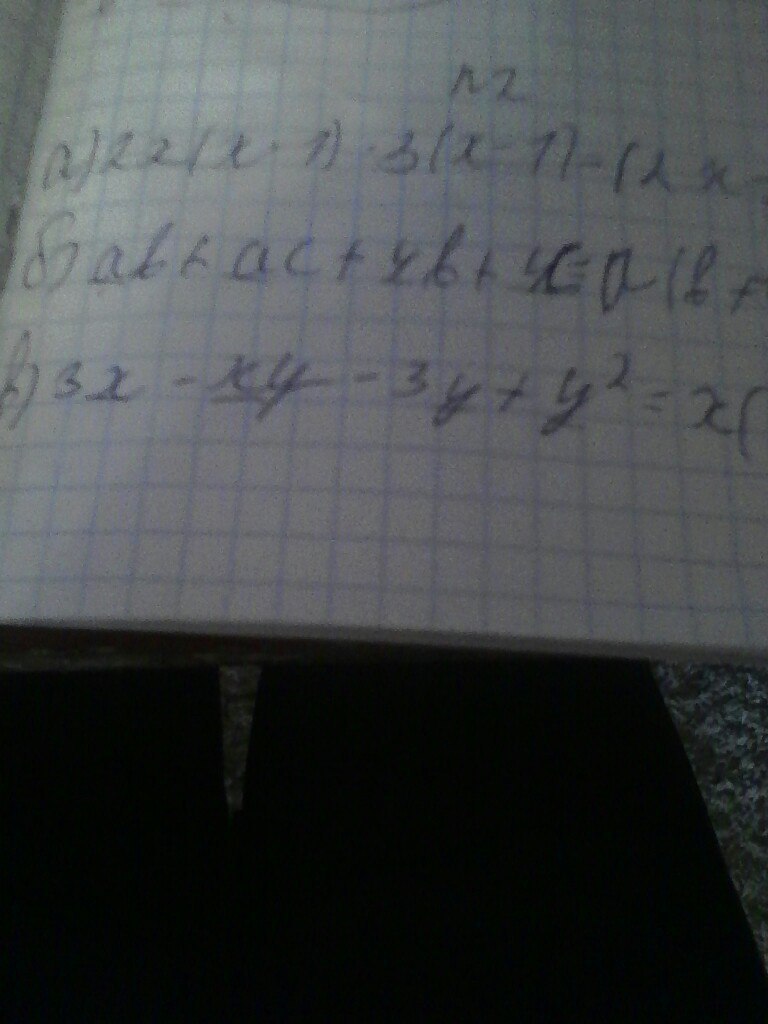 N2
а) 2x(x-1)-3(x-1)-(2x-
б) ab+ac+4b+4c=a(b+
в) 3x-xy-3y+y²=x(